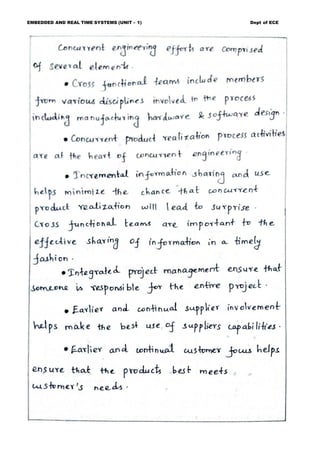 EMBEDDED AND REAL TIME SYSTEMS (UNIT – 1) Dept of ECE
Concurrent engineering efforts are comprised
of several elements.
• Cross functional teams include members
from various disciplines involved in the process
including manufacturing hardware & software design.
• Concurrent product realization process activities
are at the heart of concurrent engineering.
• Incremental information sharing and use
helps minimize the chance that concurrent
product realization will lead to surprise.
Cross functional teams are important to the
effective sharing of information in a timely
fashion.
• Integrated project management ensure that
someone is responsible for the entire project.
• Earlier and continual supplier involvement
helps make the best use of suppliers capabilities.
• Earlier and continual customer focus helps
ensure that the products best meets
customer's needs.